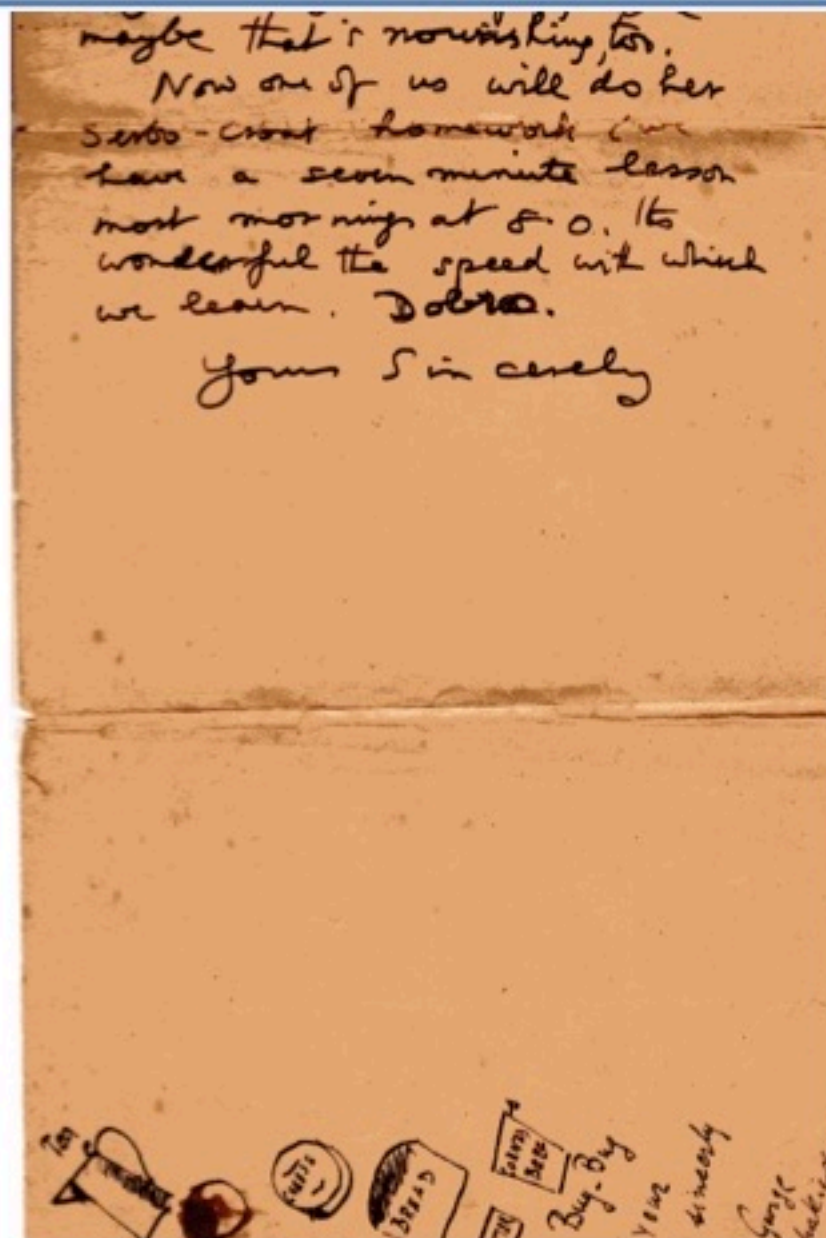 maybe that's nourishing, too.
Now one of us will do her
serbo-croat homework (we
have a seven minute lesson
most mornings at 8.0. Its
wonderful the speed with which
we learn. Dobro.
Yours Sincerely
Tea
BREAD
Bug-Bug
Your
sincerely